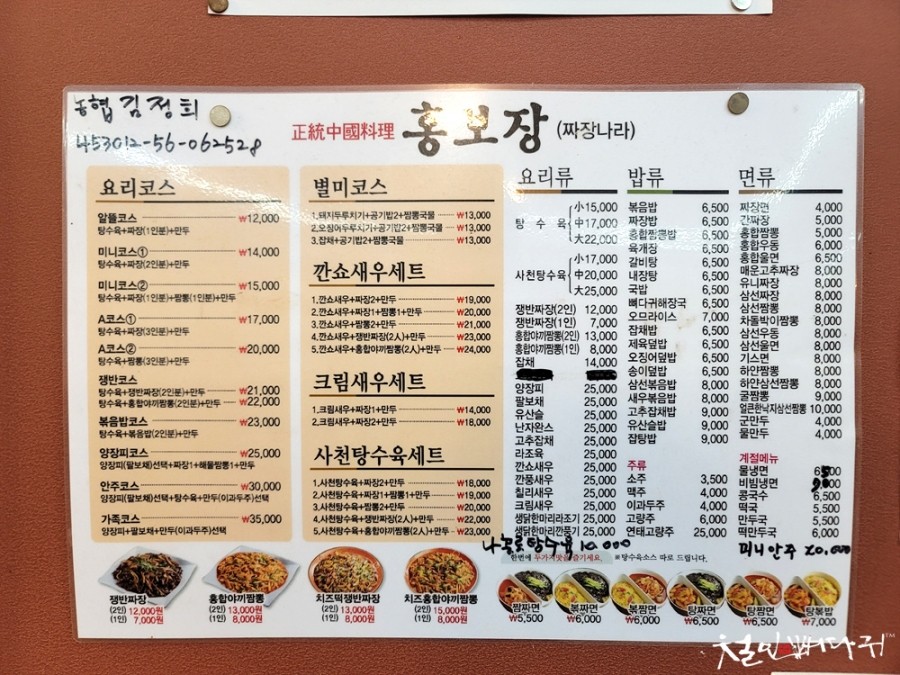 농협 김정희
453012-56-062528
正統中國料理 홍보장 (짜장나라)
요리코스
알뜰코스 ₩12,000
탕수육+짜장(1인분)+만두
미니코스① ₩14,000
탕수육+짜장(2인분)+만두
미니코스② ₩15,000
탕수육+짜장(1인분)+짬뽕(1인분)+만두
A코스① ₩17,000
탕수육+짜장(3인분)+만두
A코스② ₩20,000
탕수육+짬뽕(3인분)+만두
쟁반코스
탕수육+쟁반짜장(2인분)+만두 ₩21,000
탕수육+홍합야끼짬뽕(2인분)+만두 ₩22,000
볶음밥코스 ₩23,000
탕수육+볶음밥(2인분)+만두
양장피코스 ₩25,000
양장피(팔보채)선택+짜장1+해물짬뽕1+만두
안주코스 ₩30,000
양장피(팔보채)선택+탕수육+만두(이과두주)선택
가족코스 ₩35,000
양장피+팔보채+만두(이과두주)선택
별미코스
1.돼지두루치기+공기밥2+짬뽕국물 ₩13,000
2.오징어두루치기+공기밥2+짬뽕국물 ₩13,000
3.잡채+공기밥2+짬뽕국물 ₩13,000
깐쇼새우세트
1.깐쇼새우+짜장2+만두 ₩19,000
2.깐쇼새우+짜장1+짬뽕1+만두 ₩20,000
3.깐쇼새우+짬뽕2+만두 ₩21,000
4.깐쇼새우+쟁반짜장(2人)+만두 ₩23,000
5.깐쇼새우+홍합야끼짬뽕(2人)+만두 ₩24,000
크림새우세트
1.크림새우+짜장1+만두 ₩14,000
2.크림새우+짜장2+만두 ₩18,000
사천탕수육세트
1.사천탕수육+짜장2+만두 ₩18,000
2.사천탕수육+짜장1+짬뽕1+만두 ₩19,000
3.사천탕수육+짬뽕2+만두 ₩20,000
4.사천탕수육+쟁반짜장(2人)+만두 ₩22,000
5.사천탕수육+홍합야끼짬뽕(2人)+만두 ₩23,000
요리류
탕수육
小 15,000
中 17,000
大 22,000
사천탕수육
小 17,000
中 20,000
大 25,000
쟁반짜장(2인) 12,000
쟁반짜장(1인) 7,000
홍합야끼짬뽕(2인) 13,000
홍합야끼짬뽕(1인) 8,000
잡채 14,000
양장피 25,000
팔보채 25,000
유산슬 25,000
난자완스 25,000
고추잡채 25,000
라조육 25,000
깐쇼새우 25,000
깐풍새우 25,000
칠리새우 25,000
크림새우 25,000
생닭한마리라조기 25,000
생닭한마리깐풍기 25,000
밥류
볶음밥 6,500
짜장밥 6,500
홍합짬뽕밥 6,500
육개장 6,500
갈비탕 6,500
내장탕 6,500
국밥 6,500
뼈다귀해장국 6,500
오므라이스 7,000
잡채밥 6,500
제육덮밥 6,500
오징어덮밥 6,500
송이덮밥 6,500
삼선볶음밥 8,000
새우볶음밥 8,000
고추잡채밥 9,000
유산슬밥 9,000
잡탕밥 9,000
주류
소주 3,500
맥주 4,000
이과두주 4,000
고량주 6,000
연태고량주 25,000
면류
짜장면 4,000
간짜장 5,000
홍합짬뽕 5,000
홍합우동 6,000
홍합울면 6,500
매운고추짜장 8,000
유니짜장 8,000
삼선짜장 8,000
삼선짬뽕 8,000
차돌박이짬뽕 8,000
삼선우동 8,000
삼선울면 8,000
기스면 8,000
하얀짬뽕 8,000
하얀삼선짬뽕 8,000
굴짬뽕 9,000
얼큰한낙지삼선짬뽕 10,000
군만두 4,000
물만두 4,000
계절메뉴
물냉면
비빔냉면
콩국수 6,500
떡국 5,500
만두국 5,500
떡만두국 6,500
탕수육 10,000
미니안주 20,000
한번에 두가지맛을 즐기세요. ※탕수육소스 따로 드립니다.
쟁반짜장
(2인) 12,000원
(1인) 7,000원
홍합야끼짬뽕
(2인) 13,000원
(1인) 8,000원
치즈떡쟁반짜장
(2인) 13,000원
(1인) 8,000원
치즈홍합야끼짬뽕
(2인) 15,000원
(1인) 8,000원
짬짜면
₩5,500
볶짜면
₩6,000
볶짬면
₩6,000
탕짜면
₩6,500
탕짬면
₩6,500
탕볶밥
₩7,000
철인뼈다귀™